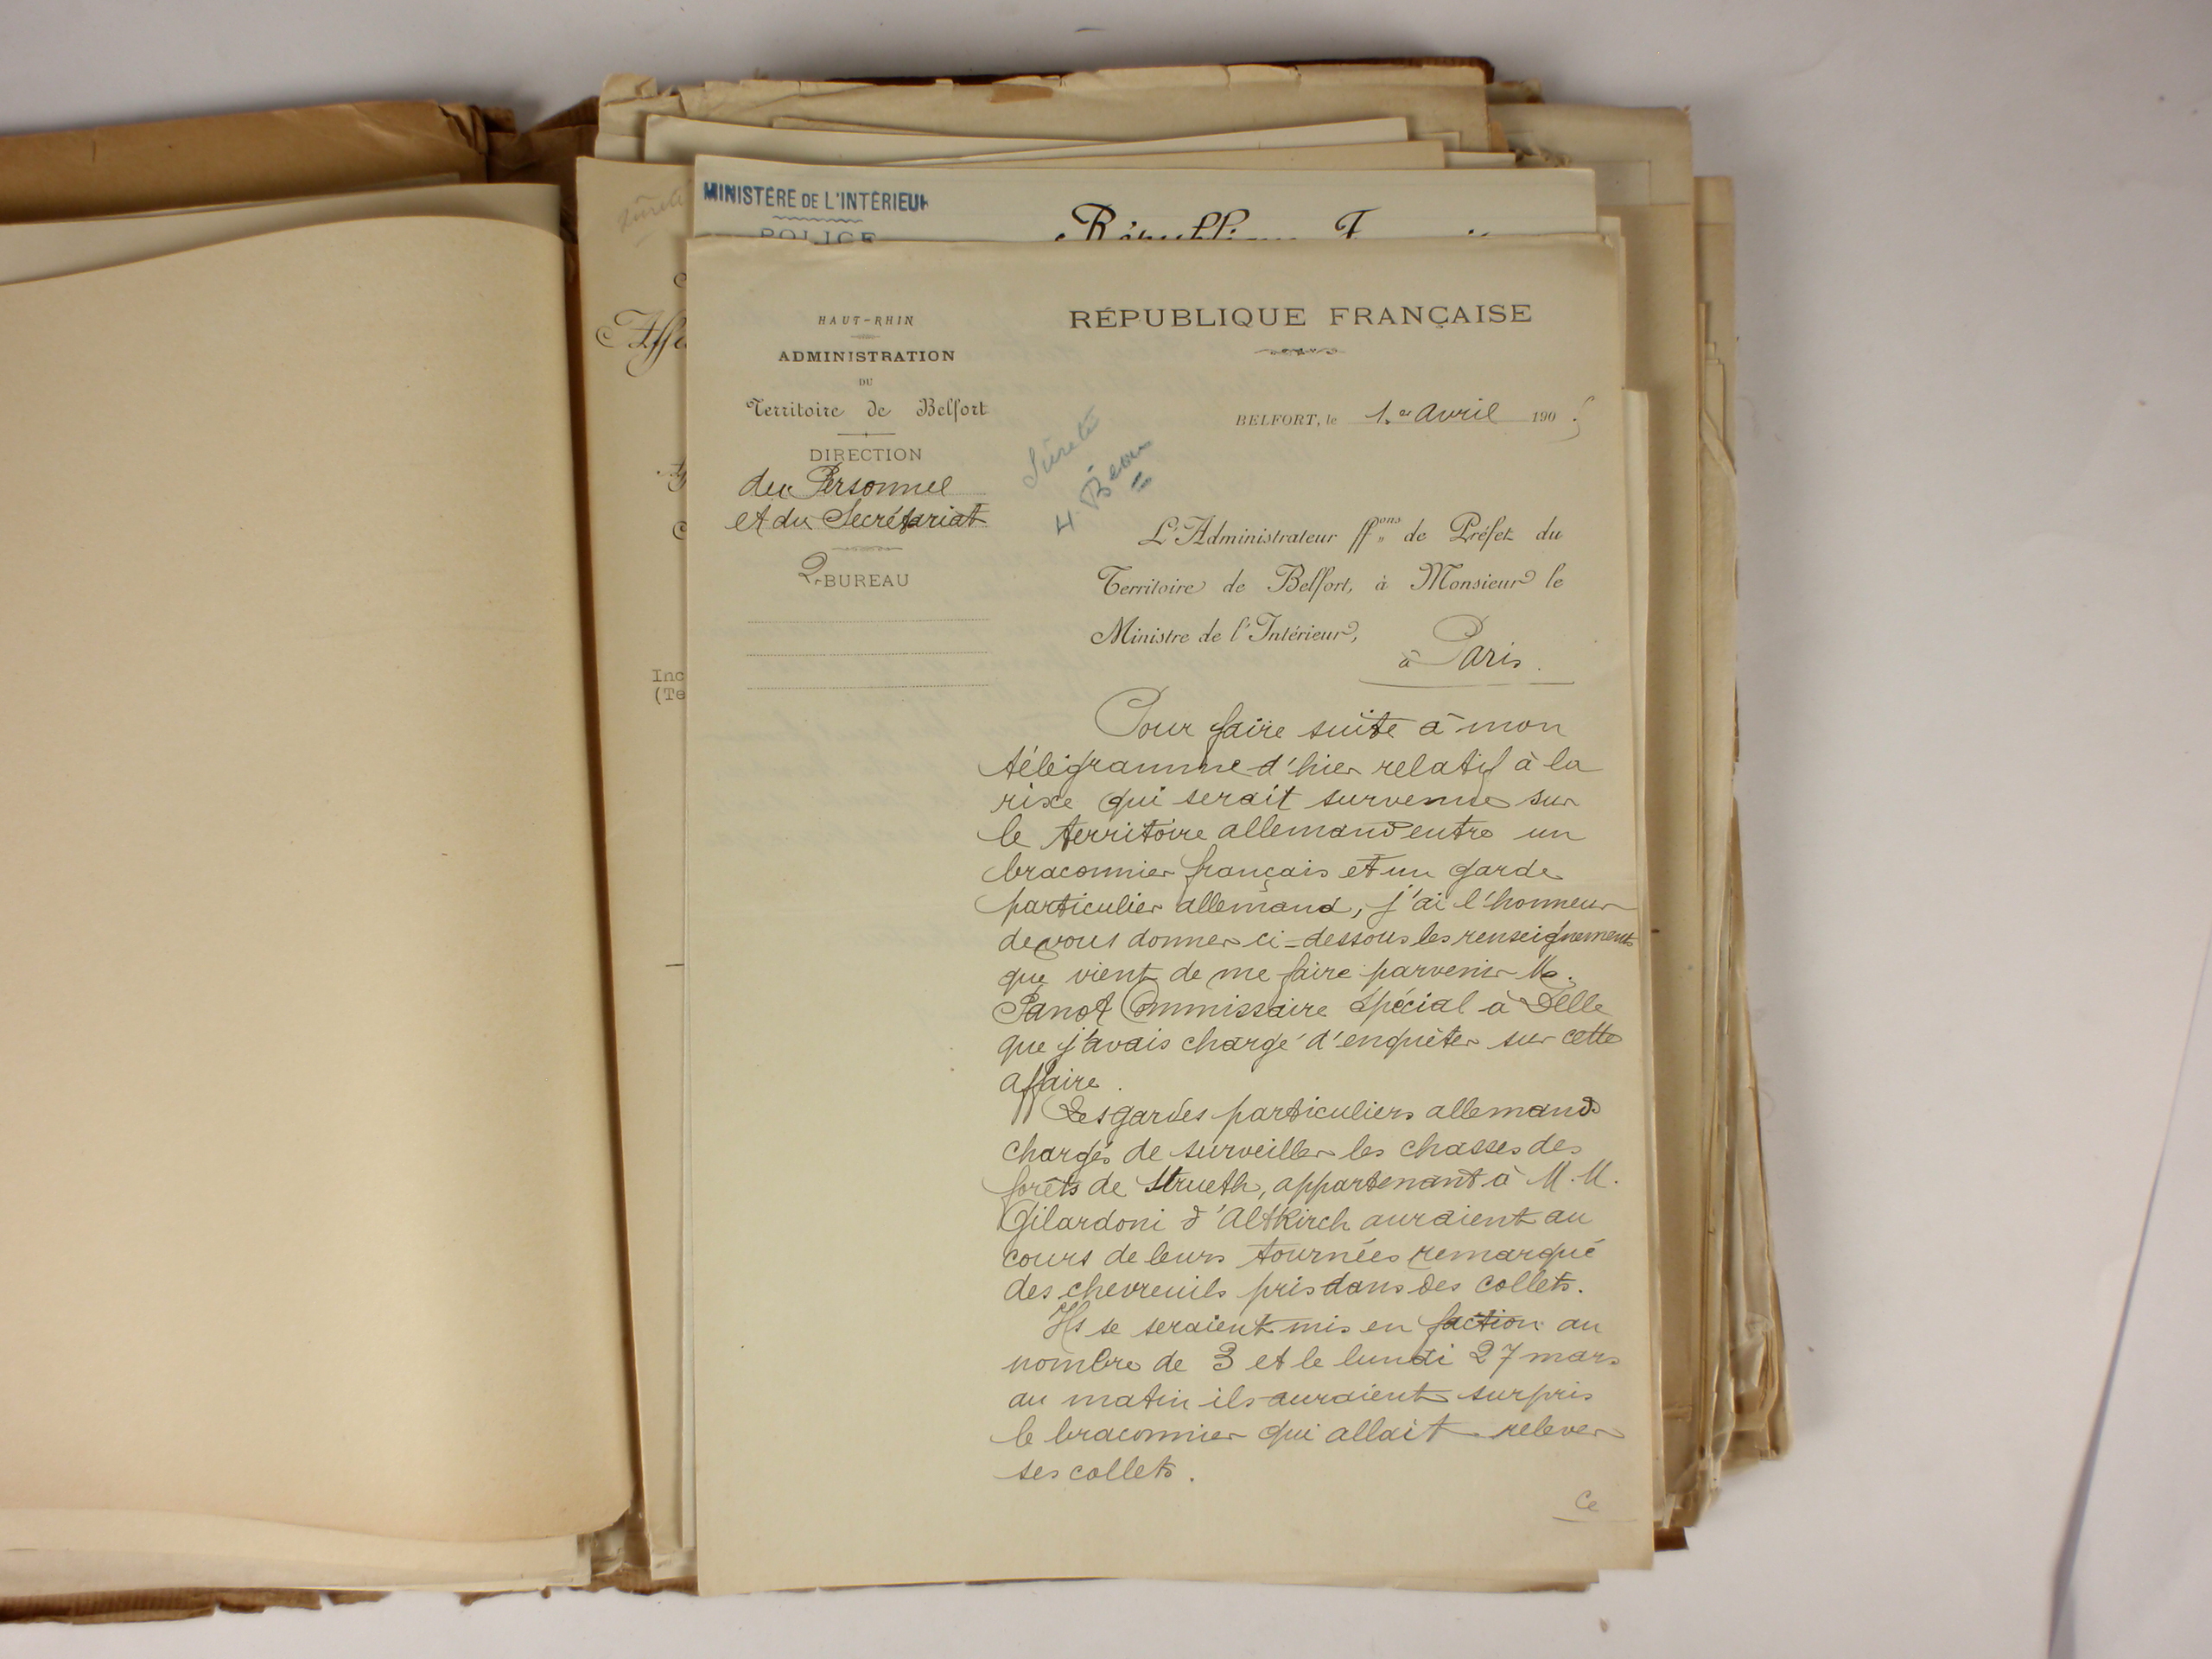 MINISTÈRE DE L'INTÉRIEUR
POLICE
République F
HAUT-RHIN
ADMINISTRATION
DU
Territoire de Belfort
DIRECTION
du Personnel
et du Secrétariat
2e BUREAU
RÉPUBLIQUE FRANÇAISE
BELFORT, le 1er Avril 1905
Sûreté
4. Beau
L'Administrateur ff.ons de Préfet du
Territoire de Belfort, à Monsieur le
Ministre de l'Intérieur,
à Paris.
Pour faire suite à mon
télégramme d'hier relatif à la
rixe qui serait survenue sur
le territoire allemand entre un
braconnier français et un garde
particulier allemand, j'ai l'honneur
de vous donner ci-dessous les renseignements
que vient de me faire parvenir M.
Panot Commissaire Spécial à Delle
que j'avais chargé d'enquêter sur cette
affaire.
Les gardes particuliers allemands
chargés de surveiller les chasses des
forêts de Strueth, appartenant à M.M.
Gilardoni d'Altkirch auraient au
cours de leurs tournées remarqué
des chevreuils pris dans des collets.
Ils se seraient mis en faction au
nombre de 3 et le lundi 27 mars
au matin ils auraient surpris
le braconnier qui allait relever
ses collets.
Ce
Inc
(Te